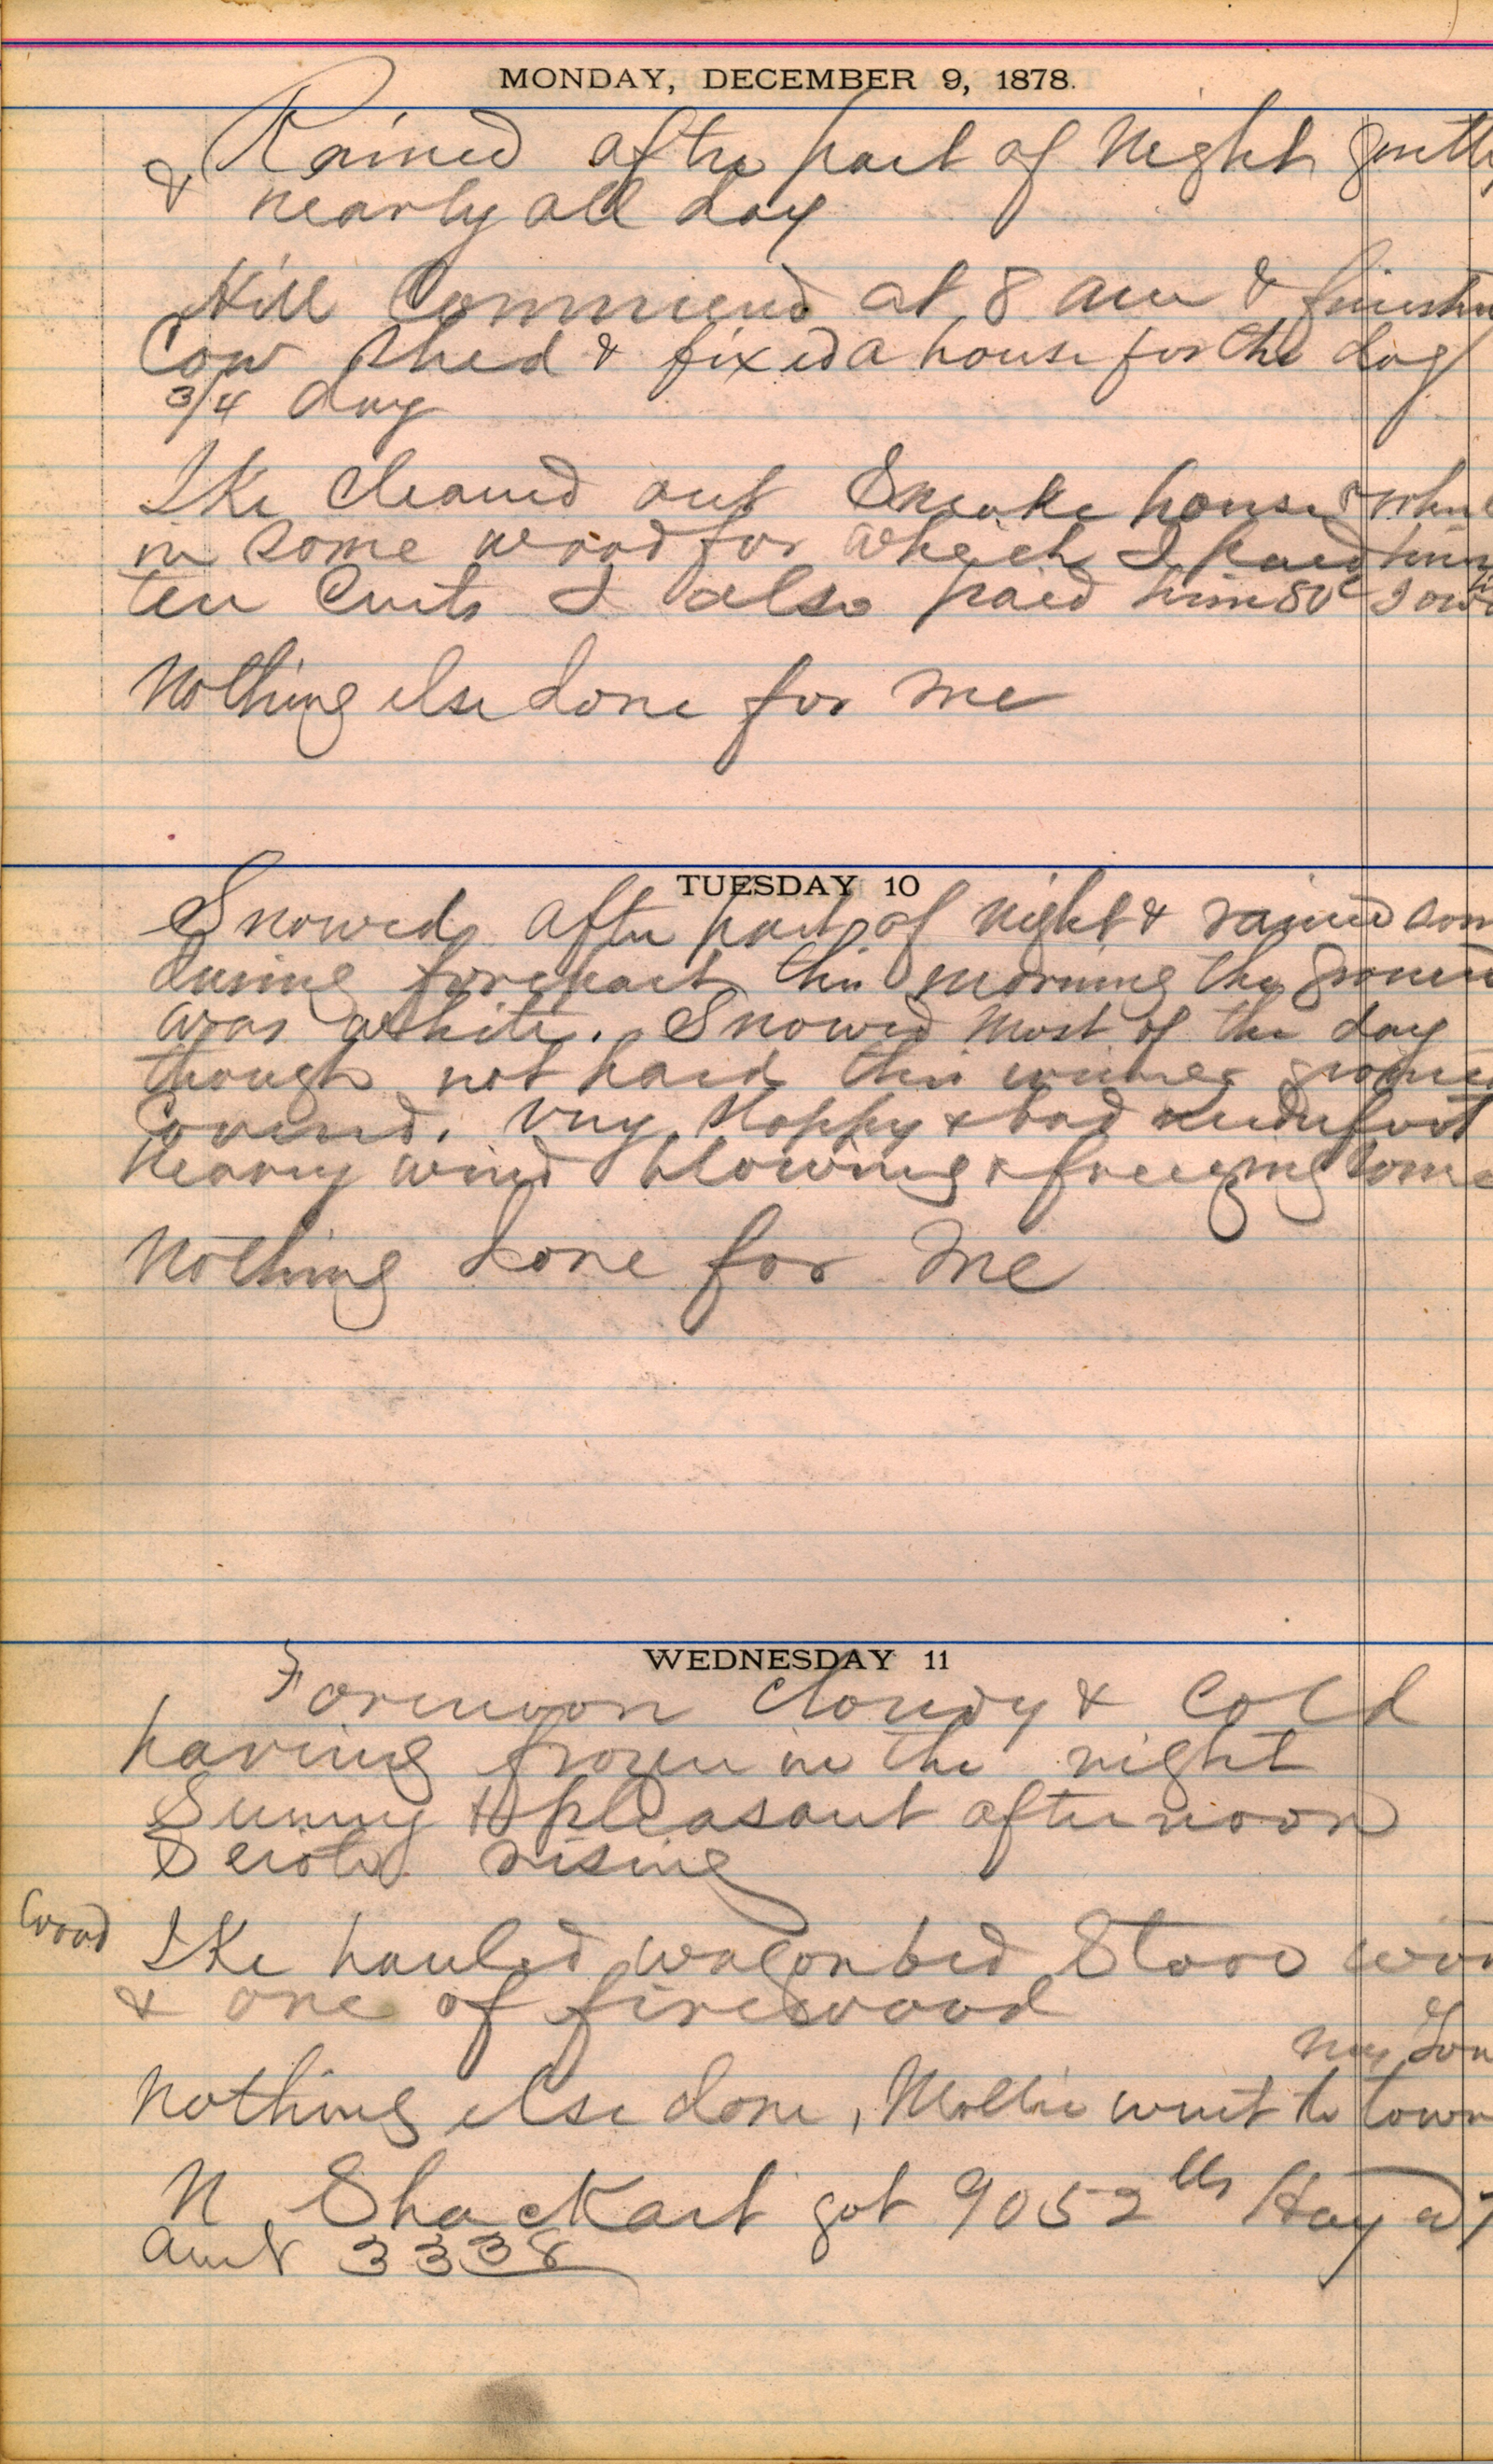 MONDAY, DECEMBER 9, 1878.
Rained after part of Night gently
& nearly all day
Hill Commend at 8 am & finished
Cow Shed & fixed a house for the dog
3/4 day
Ike cleaned out Smoke house &
in some wood for which I paid him
ten Cents I also paid him 80c I owed
Nothing else done for me
TUESDAY 10
Snowed after part of night & rained som
during forepart this morning the ground
was white. Snowed Most of the day
though not hard this evening ground
Covered. Very Sloppy & bad underfoot
heavy wind blowing & freezing some
Nothing done for me
WEDNESDAY 11
Forenoon Cloudy & Cold
having frozen in the night
Sunny & pleasant afternoon
Scioto rising
Wood
Ike hauled wagonbed Stove woo
& one of firewood
Nothing else done, Mollie went to town
N Shackart got 9052 lbs Hay
Amt 3338